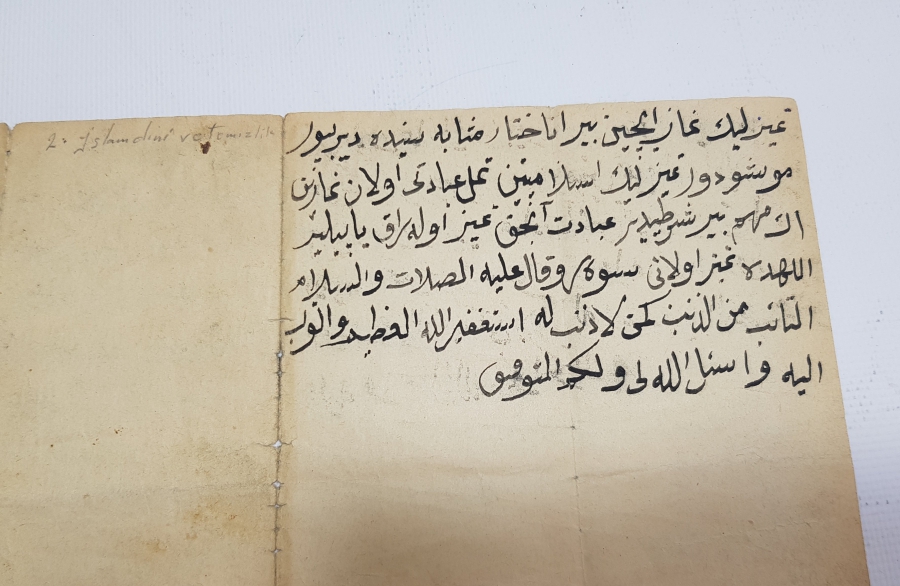 2. İslam dini ve temizlik
تميزليك نماز ايجين بير اناختار مثابه سينده ديربيور
موشودور تميزليك اسلامينين تمل عبادتى اولان نمازين
اك مهم بير شرطيدير عبادت آنجق تميز اوله راق ياپيلير
اللهده تميز اولانى سوه ر وقال عليه الصلات والسلام
التائب من الذنب كمن لا ذنب له استغفير الله العظيم واتوب
اليه واسئل الله لى ولكم التوفيق